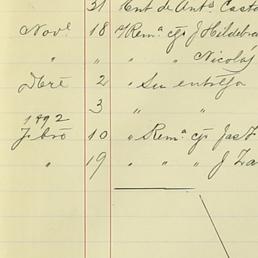 31 Ent. de Ant.º Casto
Nov.e 18 " Rem.a c/o J Hildebra
" " " " Nicolás
Dbre 2 " Su entrega
3 " "
1892
Fbro 10 " Rem.a c/o Jas F
" 19 " " " J Za